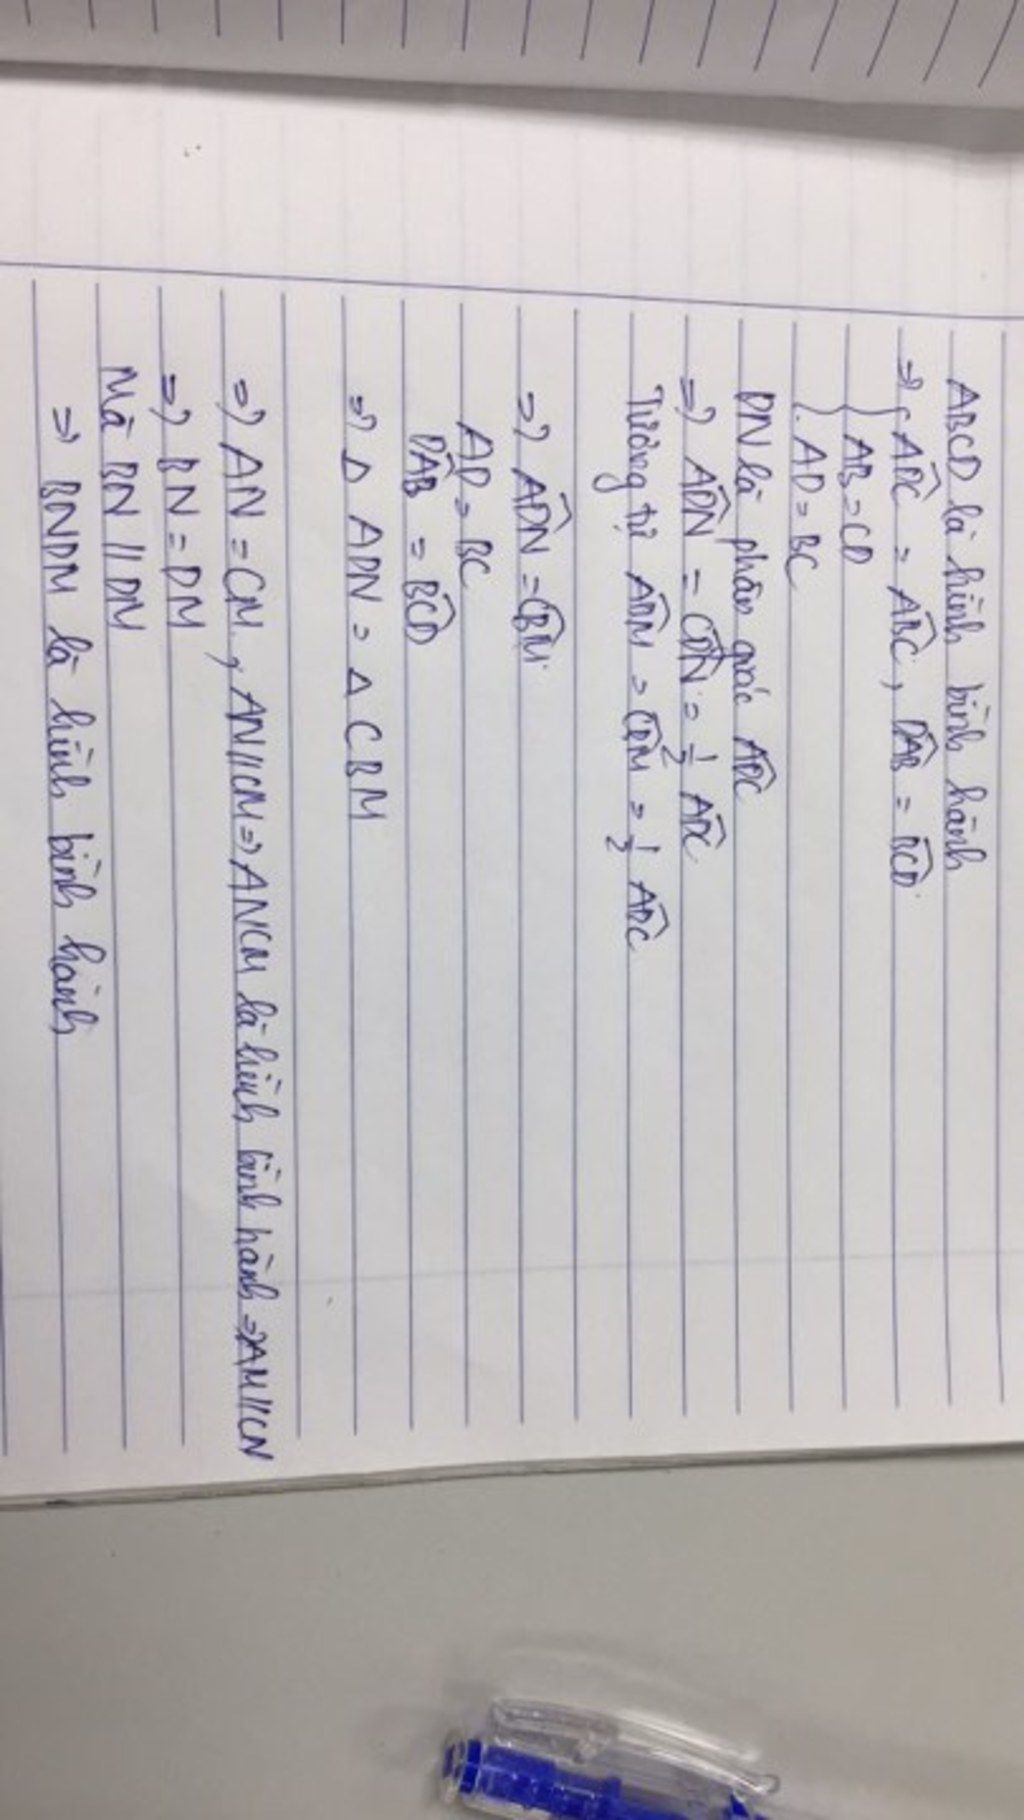 ABCD là hình bình hành
=> { ADC = ABC, DAB = BCD
AB = CD
AD = BC
DN là phân giác ADC
=> ADN = CDN = 1/2 ADC
Tương tự ADM = CBM = 1/2 ADC
=> ADN = CBM
AD = BC
DAB = BCD
=> Δ ADN = Δ CBM
=> AN = CM, AN // CM => ANCM là hình bình hành => AM // CN
=> BN = DM
Mà BN // DM
=> BNDM là hình bình hành